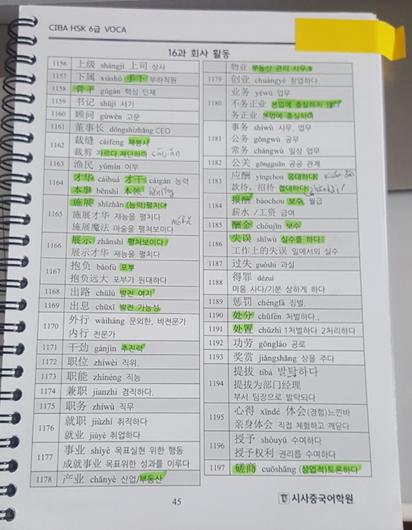 CIBA HSK 6급 VOCA
16과 회사 활동
1156 上级 shàngjí 上司 상사
1157 下属 xiàshǔ 手下 부하직원
1158 骨干 gǔgàn 핵심 인재
1159 书记 shūjì 서기
1160 顾问 gùwèn 고문
1161 董事长 dǒngshìzhǎng CEO
1162 裁缝 cáifeng 재봉사
裁剪 가르다 재단하다
1163 渔民 yúmín 어부
1164 才华 cáihuá 才干 cáigàn 능력
本事 běnshi 本领
1165 施展 shīzhǎn (능력)펼치다
施展才华 재능을 펼치다
施展魔法 마술을 펼쳐보이다
1166 展示 zhǎnshì 펼쳐보이다
展示才华 재능을 펼치다
1167 抱负 bàofù 포부
抱负远大 포부가 원대하다
1168 出路 chūlù 발전 여지
1169 出息 chūxi 발전 가능성
1170 外行 wàiháng 문외한, 비전문가
内行 전문가
1171 干劲 gànjìn 추진력
1172 职位 zhíwèi 직위
1173 职能 zhínéng 직능
1174 兼职 jiānzhí 겸직하다
1175 职务 zhíwù 직무
1176 就职 jiùzhí 취직하다
就业 jiùyè 취업하다
1177 事业 shìyè 목표실현 위한 행동
成就事业 목표위한 성과를 이루다
1178 产业 chǎnyè 산업/부동산
物业 부동산 관리 사무소
1179 创业 chuàngyè 창업하다
业务 yèwù 업무
1180 不务正业 본업에 충실하지 않다
务正业 본업에 충실하다
事务 shìwù 사무, 업무
1181 公务 gōngwù 공무
常务 chángwù 일상 업무
1182 公关 gōngguān 공공 관계
1183 应酬 yìngchou 응대하다
款待, 招待 접대하다
1184 报酬 bàochou 보수, 월급
薪水/工资 급여
1185 酬金 chóujīn 보수
1186 失误 shīwù 실수를 하다
工作上的失误 일에서의 실수
1187 过失 guòshī 과실
1188 得罪 dézuì
미움 사다/기분 상하게 하다
1189 惩罚 chéngfá 징벌
1190 处分 chǔfèn 처벌하다
1191 处置 chǔzhì 1처벌하다 2처리하다
1192 功劳 gōngláo 공로
1193 奖赏 jiǎngshǎng 상을 주다
1194 提拔 tíbá 발탁하다
提拔为部门经理
부서 팀장으로 발탁되다
1195 心得 xīndé 体会(경험)느낀바
亲身体会 직접 체험하고 깨닫다
1196 授予 shòuyǔ 수여하다
授予权利 권리를 수여하다
1197 磋商 cuōshāng (상업적)토론하다
45
시사중국어학원